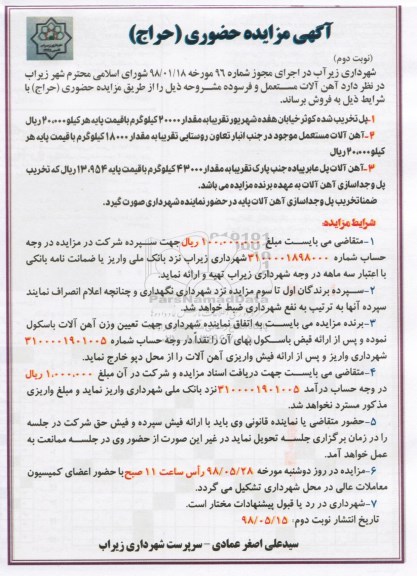 آگهی مزایده حضوری (حراج)
(نوبت دوم)
شهرداری زیرآب در اجرای مجوز شماره ۹۶ مورخه ۹۸/۰۱/۱۸ شورای اسلامی محترم شهر زیراب
در نظر دارد آهن آلات مستعمل و فرسوده مشروحه ذیل را از طریق مزایده حضوری (حراج) با
شرایط ذیل به فروش برساند.
۱-پل تخریب شده کوثر خیابان هفده شهریور تقریبا به مقدار ۲۰۰۰۰ کیلوگرم با قیمت پایه هر کیلو ۲۰،۰۰۰ ریال
۲-آهن آلات مستعمل موجود در جنب انبار تعاون روستایی تقریبا به مقدار ۱۸۰۰۰ کیلوگرم با قیمت پایه هر
کیلو ۲۰،۰۰۰ ریال
۳-آهن آلات پل عابر پیاده جنب پارک تقریبا به مقدار ۴۳۰۰۰ کیلوگرم با قیمت پایه ۱۳،۹۵۴ ریال که تخریب
پل و جداسازی آهن آلات به عهده برنده مزایده می باشد.
ضمنا تخریب پل و جداسازی آهن آلات پایه در حضور نماینده شهرداری صورت گیرد.
شرایط مزایده:
۱-متقاضی می بایست مبلغ ۱۰۰،۰۰۰،۰۰۰ ریال جهت سپرده شرکت در مزایده در وجه
حساب شماره ۳۱۰۰۰۰۱۸۹۸۰۰۰ شهرداری زیراب نزد بانک ملی واریز یا ضمانت نامه بانکی
با اعتبار سه ماهه در وجه شهرداری زیراب تهیه و ارائه نماید.
۲-سپرده برندگان اول تا سوم مزایده نزد شهرداری نگهداری و چنانچه اعلام انصراف نمایند
سپرده آنها به ترتیب به نفع شهرداری ضبط خواهد شد.
۳-برنده مزایده می بایست به اتفاق نماینده شهرداری جهت تعیین وزن آهن آلات باسکول
نموده و پس از ارائه قبض باسکول بهای آن را نقدا در وجه حساب شماره ۳۱۰۰۰۰۱۹۰۱۰۰۵
شهرداری واریز و پس از ارائه فیش واریزی آهن آلات را از محل دپو خارج نماید.
۴-متقاضی می بایست جهت دریافت اسناد مزایده و شرکت در آن مبلغ ۱،۰۰۰،۰۰۰ ریال
در وجه حساب درآمد ۳۱۰۰۰۰۱۹۰۱۰۰۵ نزد بانک ملی شهرداری واریز نماید و مبلغ واریزی
مذکور مسترد نخواهد شد.
۵-حضور متقاضی یا نماینده قانونی وی باید با ارائه فیش سپرده و فیش حق شرکت در جلسه
را در زمان برگزاری جلسه تحویل نماید در غیر این صورت از حضور وی در جلسه ممانعت به
عمل خواهد آمد.
۶-مزایده در روز دوشنبه مورخه ۹۸/۰۵/۲۸ رأس ساعت ۱۱ صبح با حضور اعضای کمیسیون
معاملات عالی در محل شهرداری تشکیل می گردد.
۷-شهرداری در رد یا قبول پیشنهادات مختار است.
تاریخ انتشار نوبت دوم: ۹۸/۰۵/۱۵
سیدعلی اصغر عمادی - سرپرست شهرداری زیراب